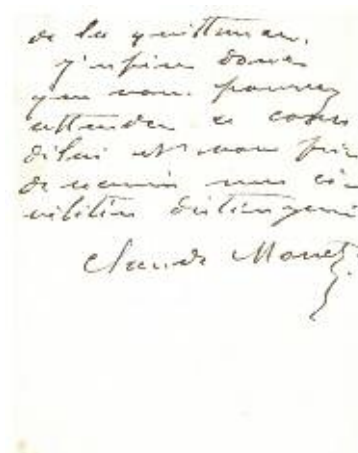 de la quittance.
j'espère donc
que vous pourrez
attendre ce court
délai et vous prie
de recevoir mes ci-
vilités distinguées
Claude Monet